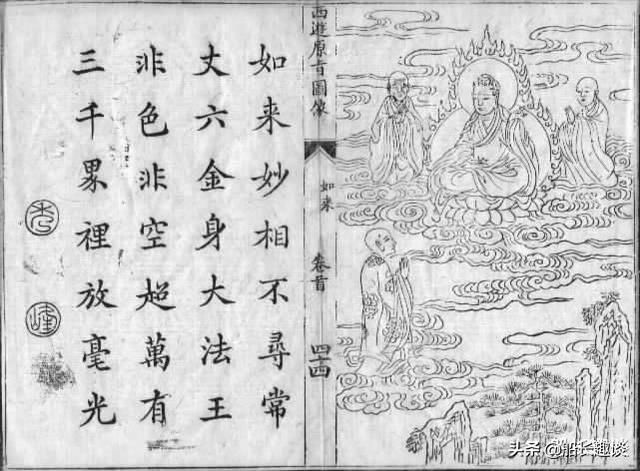 西遊原旨圖像
如来
卷首
四十四
如来妙相不尋常
丈六金身大法王
非色非空超萬有
三千界裡放毫光
头条 @船长趣谈